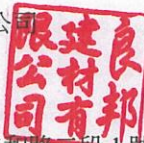 良邦
建材有
限公司